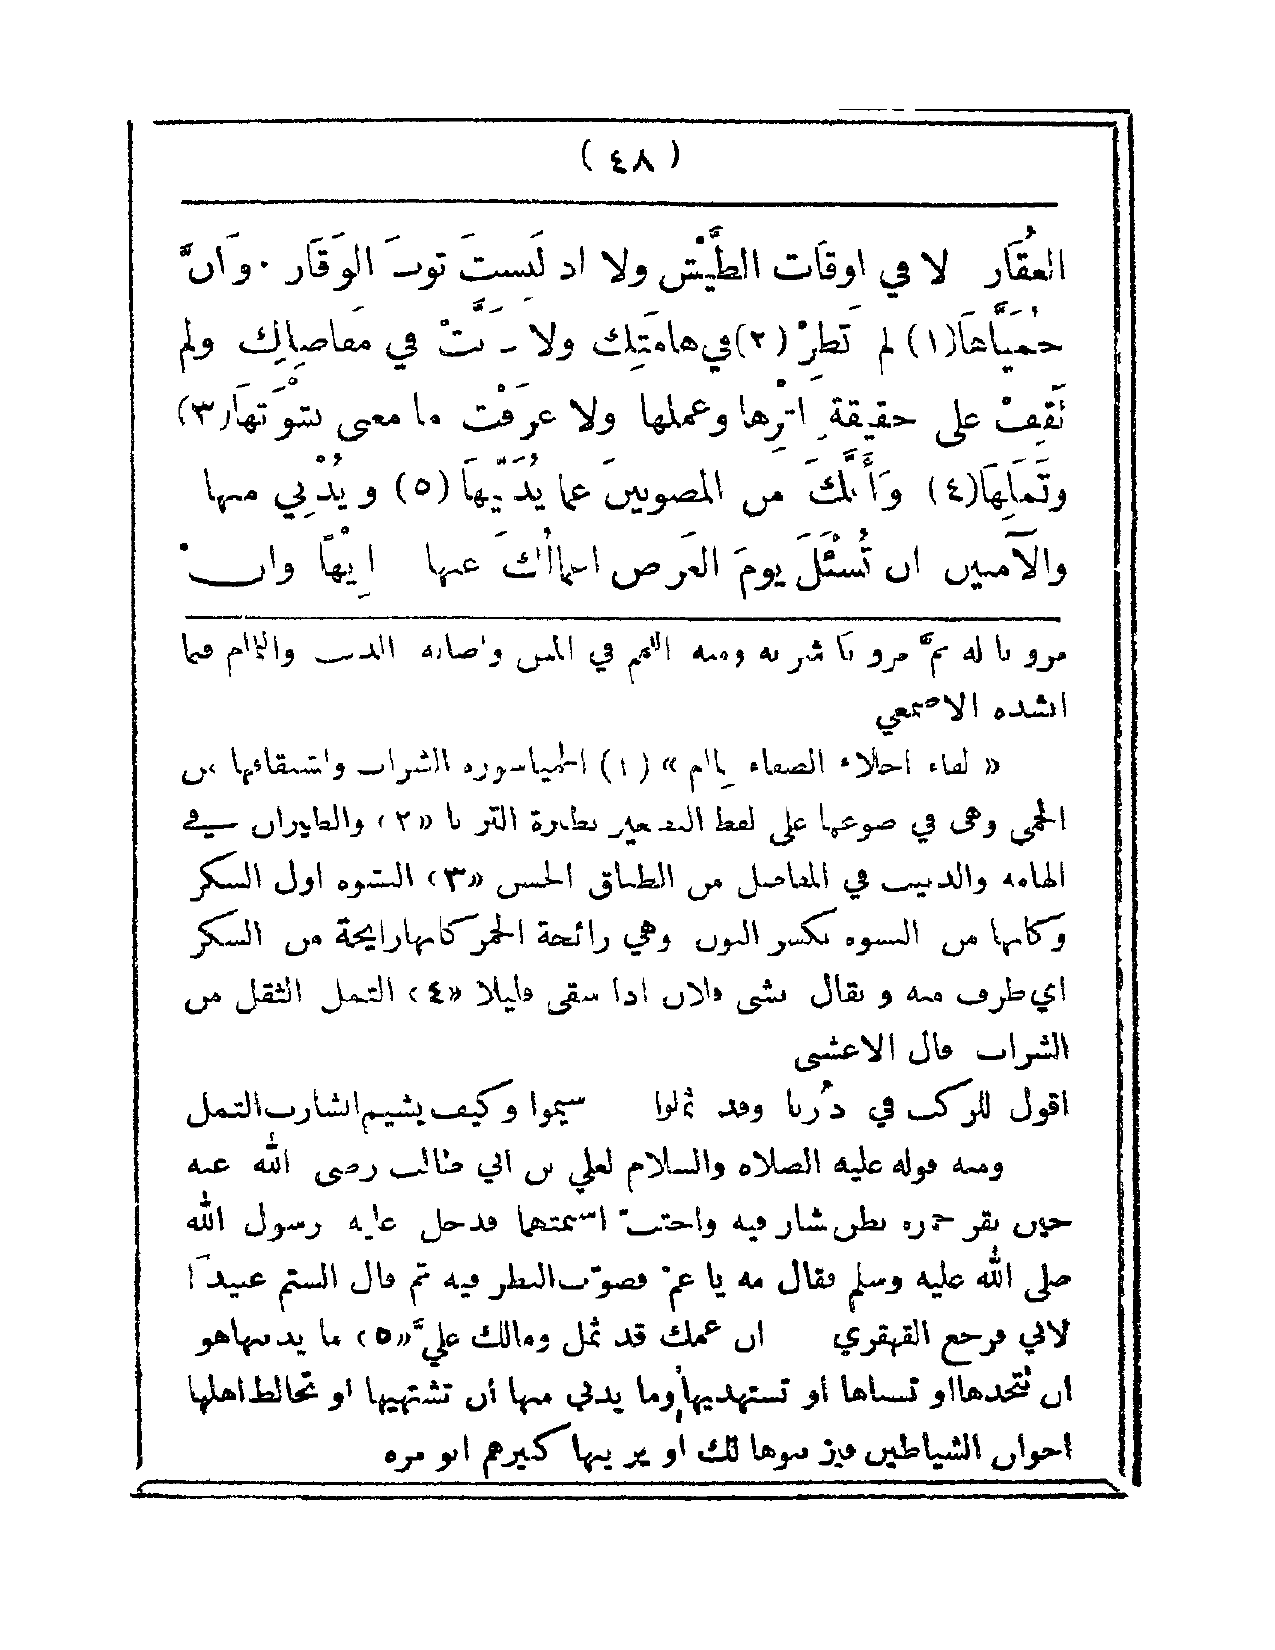 ( ٤٨ )
العُقَار لا في اوقات الطَّيْش ولا اذ لَبِستَ ثوبَ الوَقَار · وَاَنَّ
حُمَيَّاهَا(١) لم تَطِرْ (٢)في هامَتِك ولا دَبَّتْ في مَفَاصِلِك ولم
تَقِفْ على حقيقة اثَرِها وعملها ولا عرَفْتَ ما معنى نشْوَتهَا(٣)
وَثَمَلِهَا(٤) وَأَنَّكَ من المصونين عما يُدَنِّيهَا (٥) و يُدْنِي منها
والآمنين ان تُسْئَلَ يومَ العَرض اعمالُكَ عنها اِيْهًا وانْ
مرو با له ثمَّ مرو با شر به ومنه الهم في النفس واصابه الدب والايام فما
انشده الاصمعي
« لقاء اخلاء الصفاء » (١) الحمياسوره الشراب واشتقاقها من
الحمى وهى في صوغها على لفظ التصغير نظيرة الثر يا «٢» والطيران في
الهامه والدبيب في المفاصل من الطباق الحسن «٣» النشوه اول السكر
وكانها من النسوه بكسر النون وهي رائحة الخمر كانهارايحة من السكر
اي طرف منه و يقال نشى فلان اذا سقى قليلا «٤» الثمل الثقل من
الشراب قال الاعشى
اقول للركب في دُرنا وقد ثملوا شيموا وكيف يشيم الشارب الثمل
ومنه قوله عليه الصلاه والسلام لعلي بن ابي طالب رضى الله عنه
حين بقر حمزه بطن شارفيه واجتبّ اسنمتها فدخل عليه رسول الله
صلى الله عليه وسلم فقال مه يا عم فصوّب النظر فيه ثم قال الستم عبيدًا
لابي فرجع القهقرى ان عمك قد ثمل ومالك عليّ«٥» ما يدنيهاهو
ان تتخذهااو تنساها او تستهديها وما يدنى منها أن تشتهيها او تخالط اهلها
اخوان الشياطين فيز ينوها لك او ير يها كبيرهم ابو مره